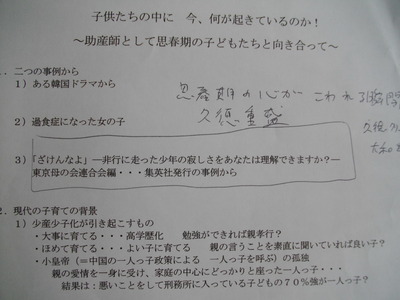 子供たちの中に 今、何が起きているのか!
～助産師として思春期の子どもたちと向き合って～
1. 二つの事例から
1)ある韓国ドラマから
思春期の心が こわれる
2)過食症になった女の子
久徳重盛
久徳
3)『ざけんなよ』―非行に走った少年の寂しさをあなたは理解できますか?―
東京母の会連合会編・・・集英社発行の事例から
2. 現代の子育ての背景
1)少産少子化が引き起こすもの
・大事に育てる・・・高学歴化 勉強ができれば親孝行?
・ほめて育てる・・・よい子に育てる 親の言うことを素直に聞いていれば良い子?
・小皇帝(=中国の一人っ子政策による 一人っ子を呼ぶ)の孤独
親の愛情を一身に受け、家庭の中心にどっかりと座った一人っ子・・・
結果は:悪いことをして刑務所に入っている子どもの70%が一人っ子?